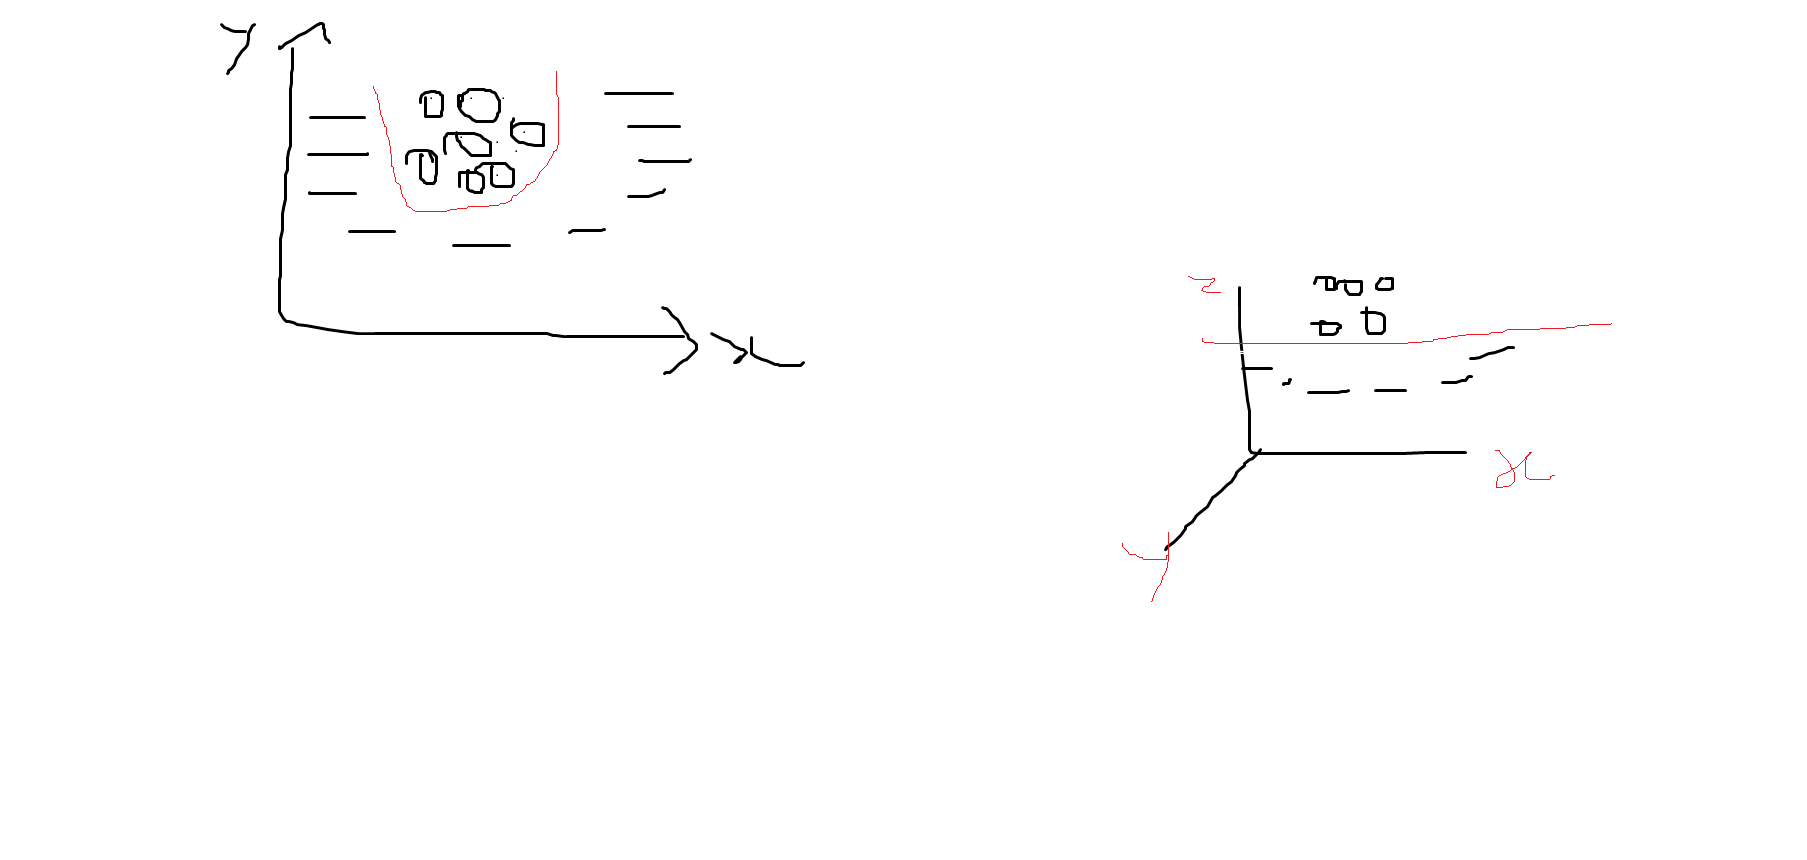 y
x
z
x
y